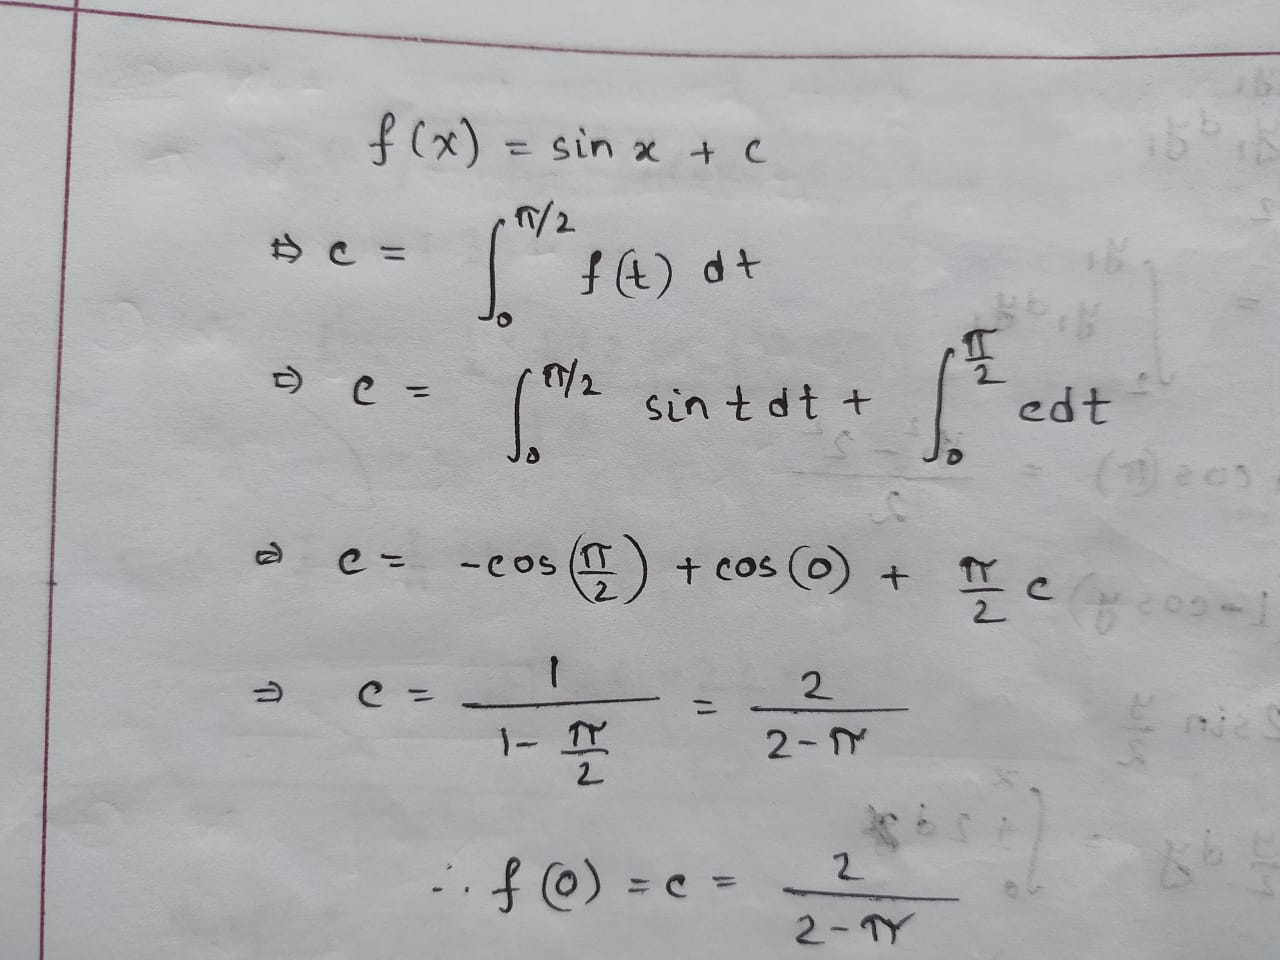 f(x) = sin x + c
⇒ c = ∫₀^{π/2} f(t) dt
⇒ c = ∫₀^{π/2} sin t dt + ∫₀^{π/2} c dt
⇒ c = -cos(π/2) + cos(0) + π/2 c
⇒ c = 1/(1 - π/2) = 2/(2 - π)
∴ f(0) = c = 2/(2 - π)